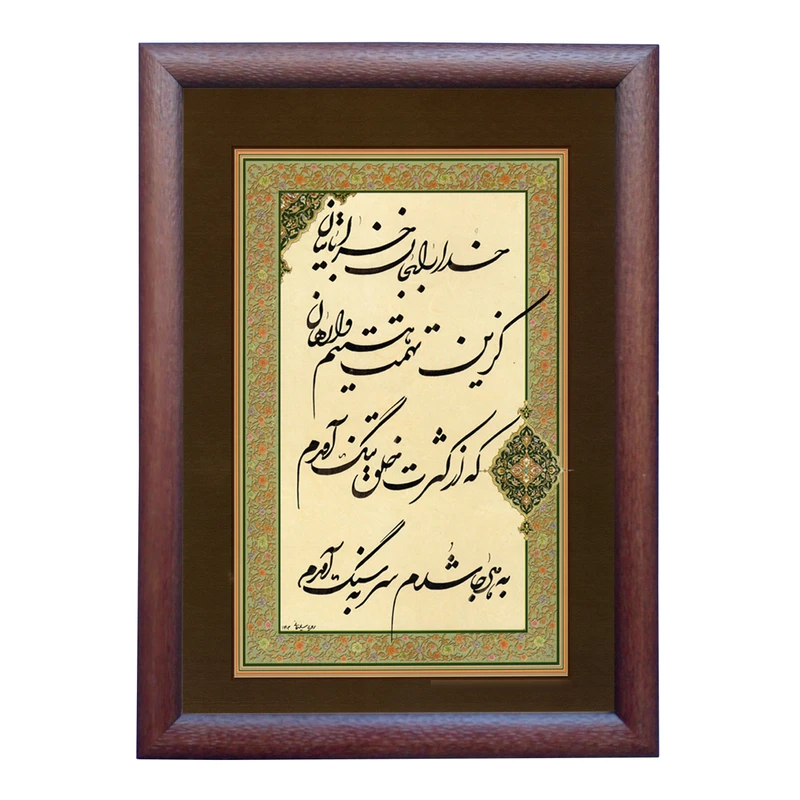 خدا را بجان خراباتیان
کزین تهمت هستیم وارهان
که از کثرت خلق تنگ آمدم
به هر جا شدم سر به سنگ آمدم